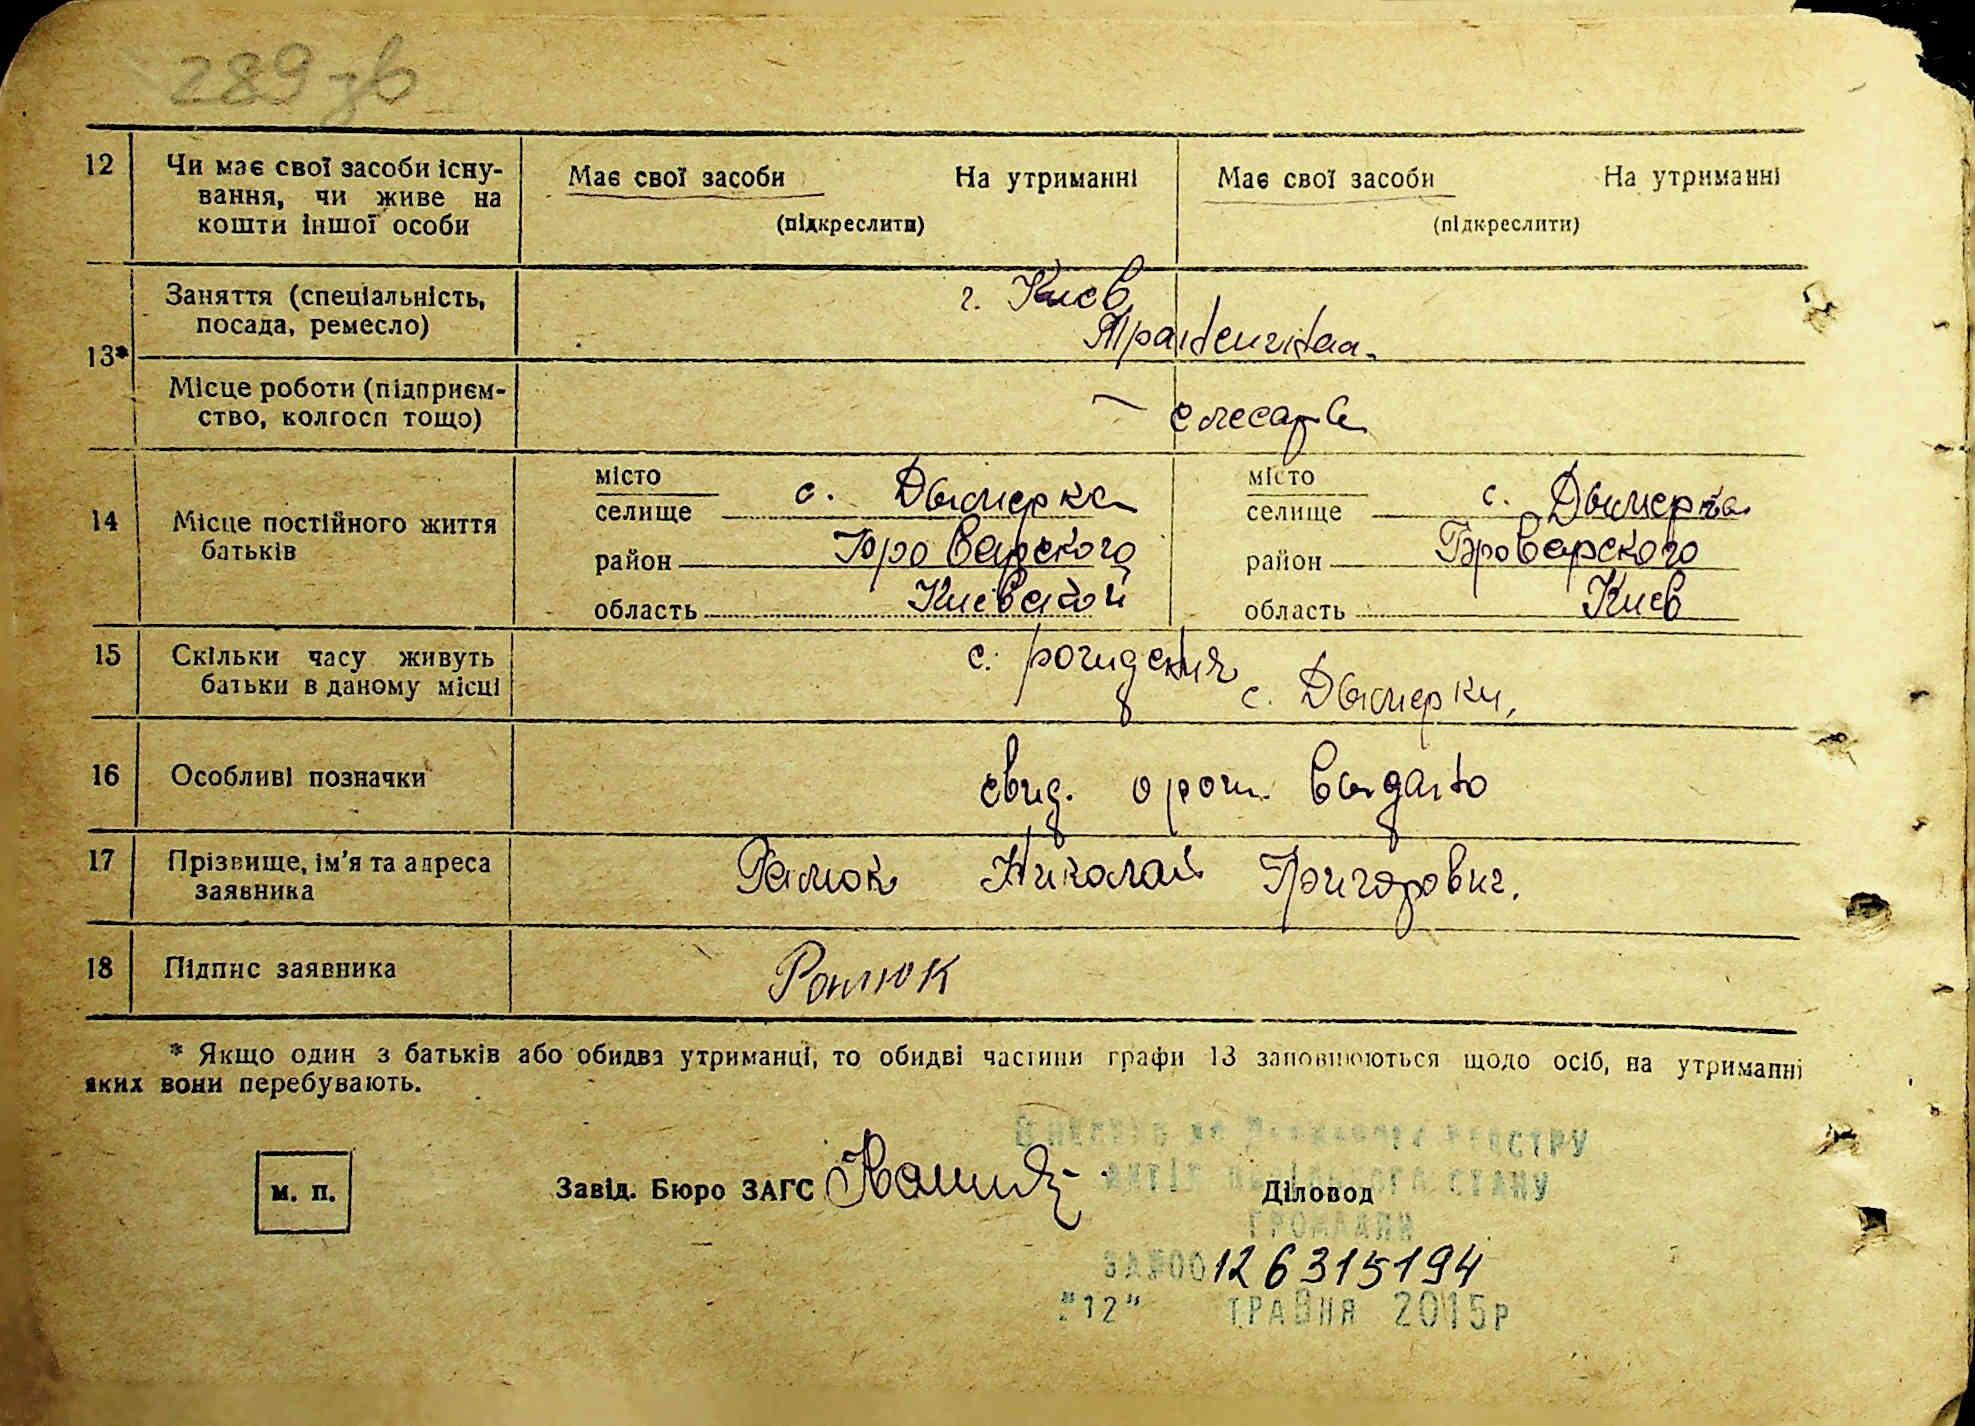 289 зв
12 Чи має свої засоби існу-
вання, чи живе на
кошти іншої особи
Має свої засоби На утриманні
(підкреслити)
Має свої засоби На утриманні
(підкреслити)
13*
Заняття (спеціальність,
посада, ремесло)
г. Киев
Місце роботи (підприєм-
ство, колгосп тощо)
слесарь
14 Місце постійного життя
батьків
місто
селище с. Дымерка
район Броварского
область Киевской
місто
селище с. Дымерка
район Броварского
область Киев
15 Скільки часу живуть
батьки в даному місці
с. рождения
с. Дымерки,
16 Особливі позначки
свид. о рож. выдано
17 Прізвище, ім'я та адреса
заявника
Николай Григорович.
18 Підпис заявника
* Якщо один з батьків або обидва утриманці, то обидві частини графи 13 заповнюються щодо осіб, на утриманні
яких вони перебувають.
м. п.
Завід. Бюро ЗАГС
Діловод
Внесено до Державного реєстру
актів цивільного стану
громадян
ЗА №00126315194
"12" ТРАВНЯ 2015р